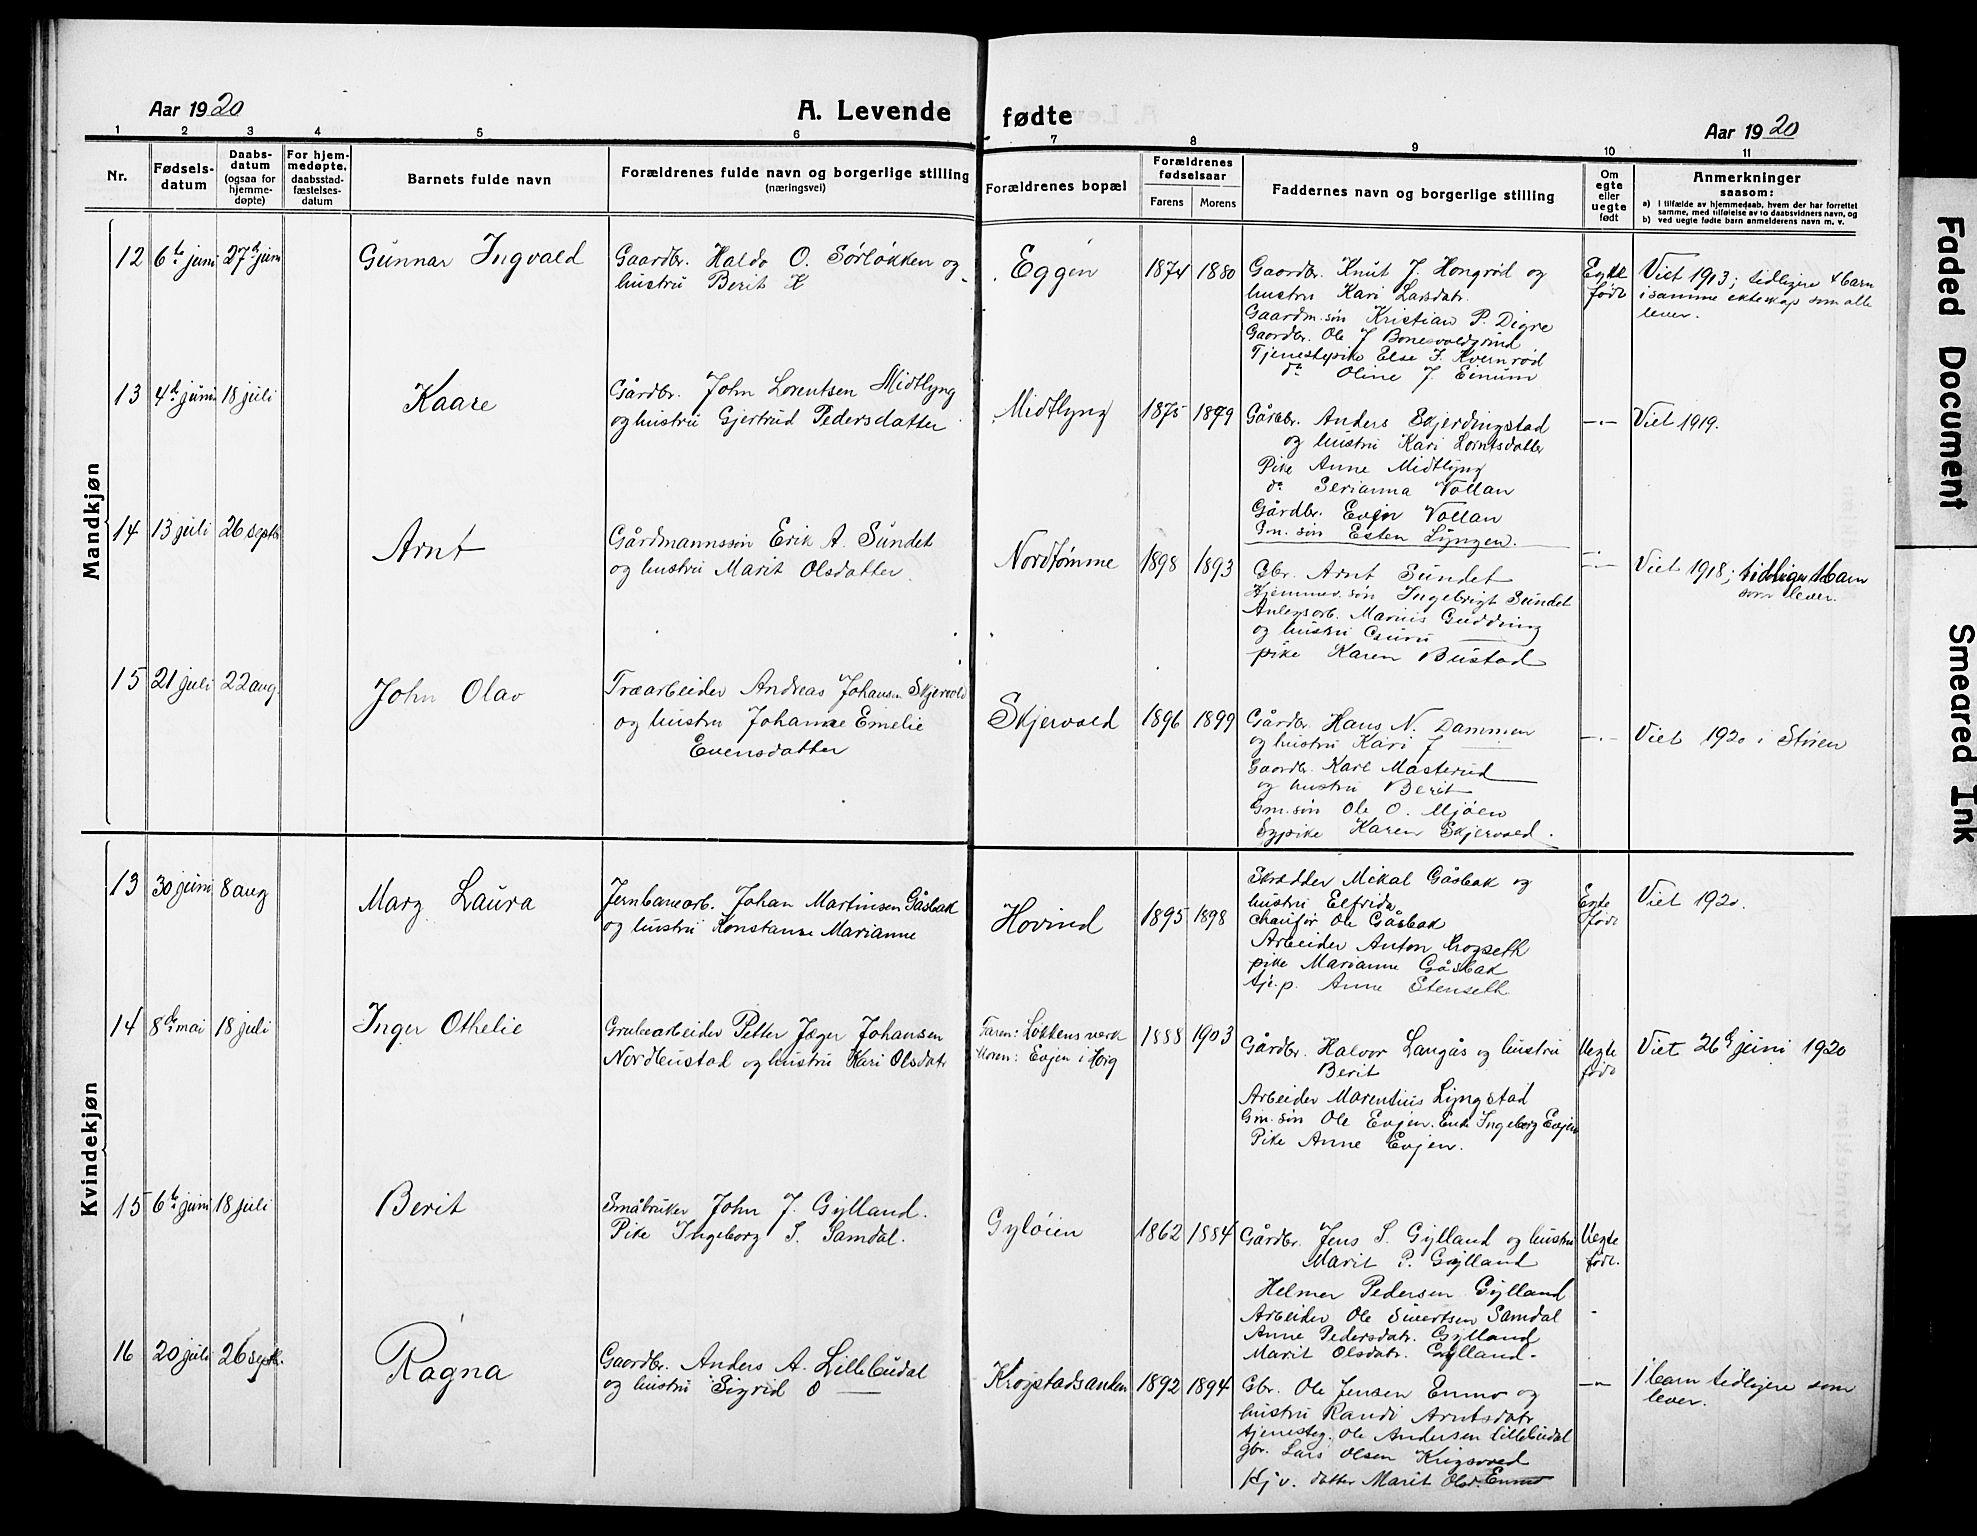 Aar 1920
A. Levende fødte
Aar 1920
1 2 3 4 5 6 7 8 9 10 11
Nr.
Fødselsdatum
Daabsdatum (ogsaa for hjemmedøpte)
For hjemmedøpte, daabsstadfæstelsesdatum
Barnets fulde navn
Forældrenes fulde navn og borgerlige stilling
(næringsvei)
Forældrenes bopæl
Forældrenes fødselsaar
Farens Morens
Faddernes navn og borgerlige stilling
Om egte eller uegte født
Anmerkninger
saasom:
a) I tilfælde av hjemmedaab, hvem der har forrettet samme, med tilføielse av to daabsvidners navn, og
b) ved uegte fødte barn anmelderens navn m. v.
Mandkjøn
12 6te juni 27de juni
Gunnar Ingvald
Gaardbr. Haldo O. Sørløkken og
hustru Berit K
Eggen
1874 1880
Gaardbr. Knut J. Hongrød og
hustru Kari Larsdatr.
Gaardm.søn Kristian P. Digre
Gaardbr. Ole J
Tjenestepike Else J. Kvernrød
do Oline J. Einum
Egte
født
Viet 1913; tidligere 4 barn
i samme ekteskap som alle
lever.
13 4de juni 18 juli
Kaare
Gårdbr. John Lorentsen Midtlyng
og hustru Gjertrud Pedersdatter
Midtlyng
1875 1879
Gårdbr. Anders Skjerdingstad
og hustru Kari Lorntsdatter
Pike Anne Midtlyng
do Serianna Vollan
Gårdbr. Even Vollan
Gm. søn Esten Lyngen.
—·—
Viet 1919.
14 13 juli 26 septbr
Arnt
Gårdmannssøn Erik A. Sundet
og hustru Marit Olsdatter.
Nordtømme
1898 1893
Gbr. Arnt Sundet
Hjemmev. søn Ingebrigt Sundet
Anlegsarb. Marius Gudding
og hustru Guru —
pike Karen Bustad
—·—
Viet 1918; tidliger 1 barn
som lever.
15 21 juli 22 aug.
John Olav
Træarbeider Andreas Johansen Skjervold
og hustru Johanne Emelie
Evensdatter
Skjervold
1896 1899
Gårdbr. Hans N. Dammen
og hustru Kari J —
Gaardbr. Karl Masterud
og hustru Berit —
Gm.søn Ole O. Mjøen
Sypike Karen Skjervold.
—·—
Viet 1920 i Støren
Kvindekjøn
13 30 juni 8 aug
Marg Laura
Jernbanearb. Johan Martinsen Gåsbak
og hustru Konstanse Marianne
Hovind
1895 1898
Skrædder Mikal Gåsbak og
hustru Elfrida
chaufør Ole Gåsbak
Arbeider Anton Krogseth
pike Marianne Gåsbak
tje.p. Anne Stenseth
Egte
født
Viet 1920.
14 8de mai 18 juli
Inger Othelie
Grubearbeider Petter Jæger Johansen
Nordbustad og hustru Kari Olsdatr
Faren: Løkkens verk
Moren: Evjen i Horg
1888 1903
Gårdbr. Halvor Langås og hustru
Berit
Arbeider Marentius Lyngstad
Gm. søn Ole Evjen. Enke Ingeborg Evjen
Pike Anne Evjen.
Uegte
født
Viet 26de juni 1920
15 6te juni 18 juli
Berit
Småbruker John J. Gylland.
Pike Ingeborg S. Samdal.
Gyløien
1862 1884
Gårdbr. Jens S. Gylland og hustru
Marit P. Gylland
Helmer Pedersen Gylland
Arbeider Ole Sivertsen Samdal
Anne Pedersdatr. Gylland
Marit Olsdatr. Gylland.
Uegte
født.
16 20 juli 26 septb.
Ragna
Gaardbr. Anders A. Lillebudal
og hustru Sigrid O —
Krogstadsanden
1892 1894
Gbr. Ole Jensen Enmo og
hustru Randi Arntsdatr
tjenesteg. Ole Andersen Lillebudal
gbr. Lars Olsen Krigsvold
Hj v. datter Marit Olsd. Enmo
—"—
1 barn tidligere som
lever.
Faded Document
Smeared Ink